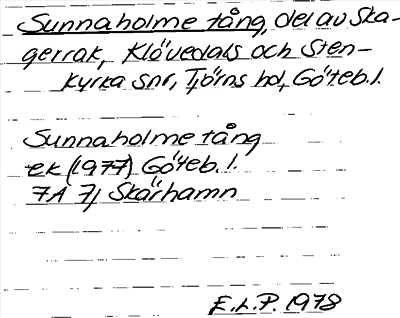 Sunnaholme tång, del av Ska-
gerrak, Klövedals och Sten-
kyrka snr, Tjörns hd, Göteb. l.
Sunnaholme tång
ek (1977) Göteb. l.
7A 7j Skärhamn
E.L.P. 1978